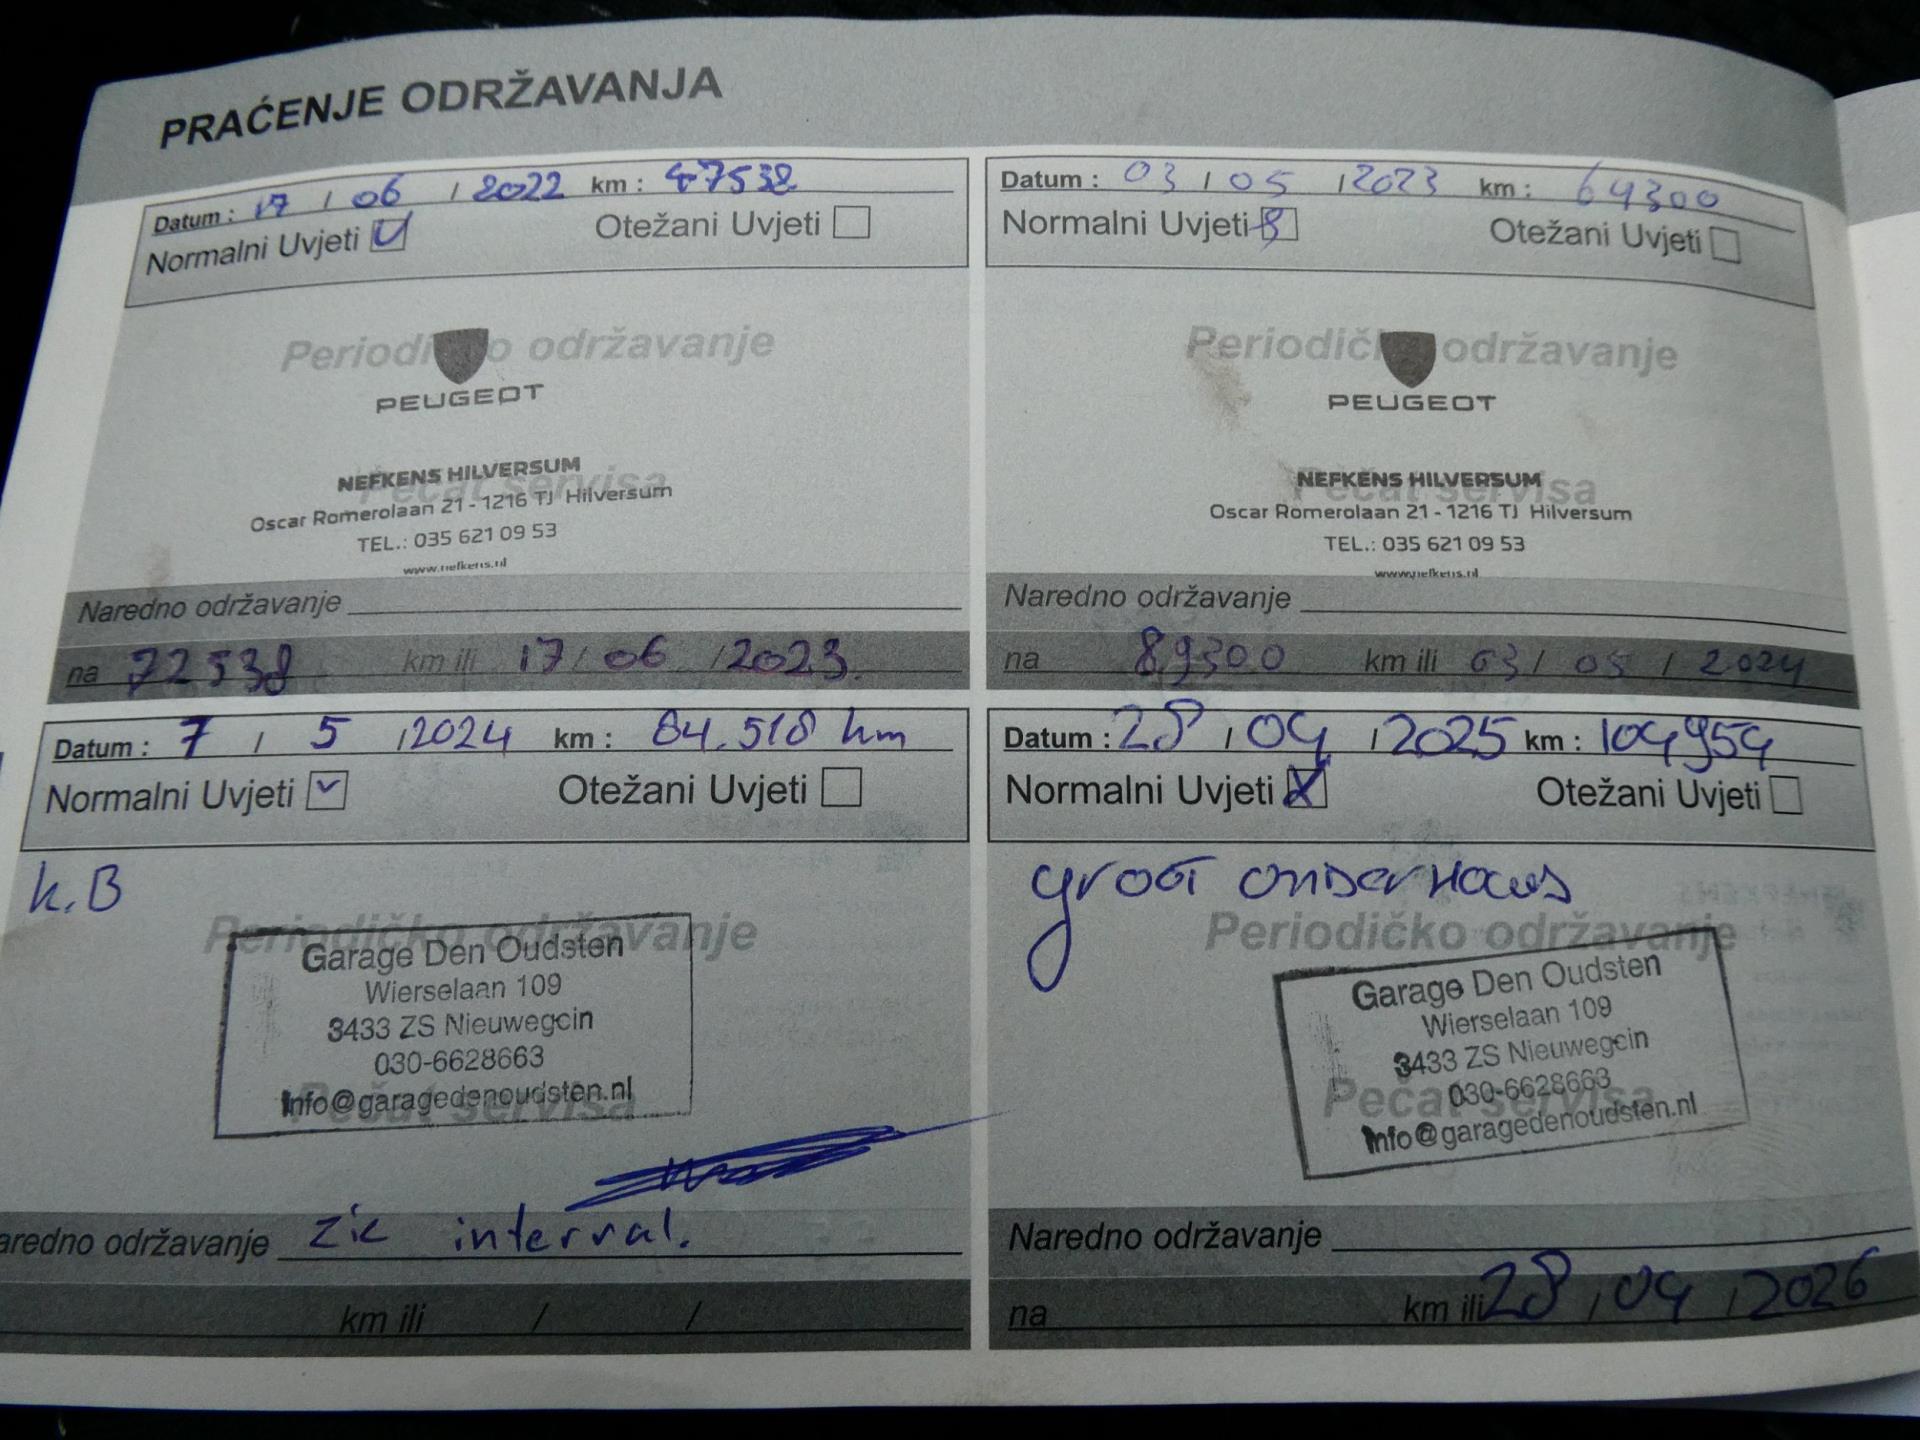 PRAĆENJE ODRŽAVANJA
Datum : 17 / 06 / 2022 km : 47538
Normalni Uvjeti Otežani Uvjeti
Periodičko održavanje
PEUGEOT
NEFKENS HILVERSUM
Pečat servisa
Oscar Romerolaan 21 - 1216 TJ Hilversum
TEL.: 035 621 09 53
www.nefkens.nl
Naredno održavanje
na 72538 km ili 17 / 06 / 2023
Datum : 03 / 05 / 2023 km : 64300
Normalni Uvjeti Otežani Uvjeti
Periodičko održavanje
PEUGEOT
NEFKENS HILVERSUM
Pečat servisa
Oscar Romerolaan 21 - 1216 TJ Hilversum
TEL.: 035 621 09 53
www.nefkens.nl
Naredno održavanje
na 89300 km ili 03 / 05 / 2024
Datum : 7 / 5 / 2024 km : 84.518 km
Normalni Uvjeti Otežani Uvjeti
k.B
Periodičko održavanje
Garage Den Oudsten
Wierselaan 109
3433 ZS Nieuwegein
030-6628663
Pečat servisa
Info@garagedenoudsten.nl
aredno održavanje zie interval.
km ili / /
Datum : 28 / 04 / 2025 km : 104954
Normalni Uvjeti Otežani Uvjeti
groot onderhoud
Periodičko održavanje
Garage Den Oudsten
Wierselaan 109
3433 ZS Nieuwegein
030-6628663
Pečat servisa
Info@garagedenoudsten.nl
Naredno održavanje
na km ili 28 / 04 / 2026